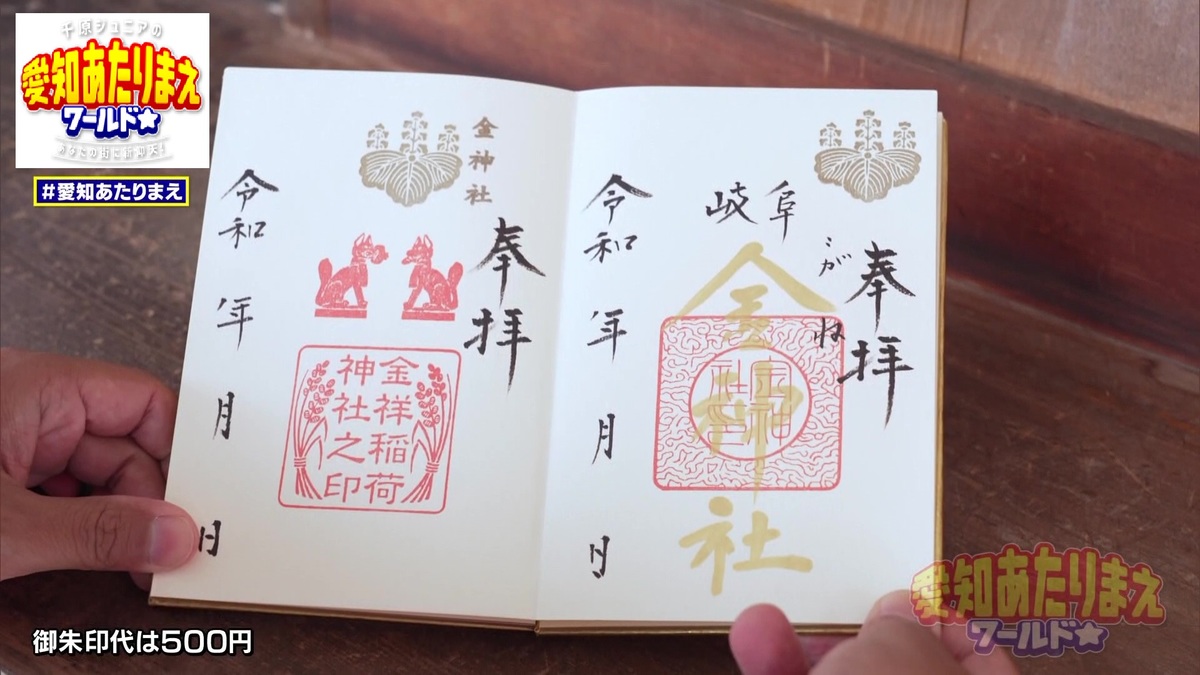 千原ジュニアの
愛知あたりまえ
ワールド☆
あなたの街に新仰天!
#愛知あたりまえ
金神社
奉拝
金祥稲荷
神社之印
令和 年 月 日
奉拝
岐阜
こがね
金神社
令和 年 月 日
愛知あたりまえ
ワールド☆
御朱印代は500円